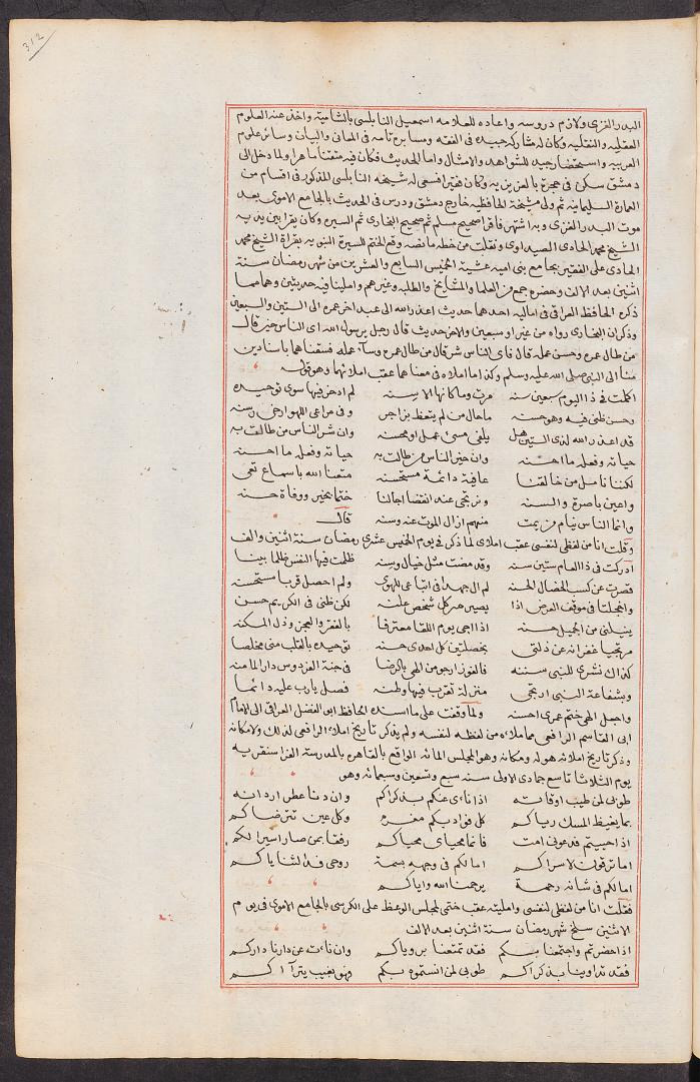 ٣١٢
البدر الغزى ولازم دروسه واعاده للعلامه اسمعيل النابلسى بالشاميه واخذ عنه العلوم
العقليه والنقليه وكان له مشاركه جيده فى الفقه ومسايره تامه فى المعانى والبيان وسائر علوم
العربيه واستحضار جيد للشواهد والامثال واما الحديث فكان فيه متقنا ماهرا ولما دخل الى
دمشق سكن فى حجرة بالعزيزيه وكان فقيرا فسعى له شيخه النابلسى المذكور فى اقسام من
العمارة السليمانيه ثم ولى مشيخة الحافظيه خارج دمشق ودرس فى الحديث بالجامع الاموى بعد
موت البدر الغزى وبه اشتهر فاقرا صحيح مسلم ثم صحيح البخارى ثم السيره وكان يقرا بين يديه
الشيخ محمد الحادى الصيداوى ونقلت من خطه ما نصه وقع الختم للسيرة النبويه بقراة الشيخ محمد
الحادى على الفقير بجامع بنى اميه عشية الخميس السابع والعشرين من شهر رمضان سنة
اثنين بعد الالف وحضره جمع من العلما والمشايخ والطلبه وغيرهم واملينا فيه حديثين وهما مما
ذكره الحافظ العراقى فى اماليه احدهما حديث اعذر الله الى عبد اخر عمره الى الستين والسبعين
وذكر ان البخارى رواه من غير او سبعين والاخر حديث قال رجل يرسول الله اى الناس خير قال
من طال عمره وحسن عمله قال فاى الناس شر قال من طال عمره وساء عمله فسقناهما باسنادين
منا الى النبى صلى الله عليه وسلم وكذا ما املاه فى معناهما عقب املائهما وهو قوله
اكملت فى ذا اليوم سبعين سنه مرت وما كانها الا سنه لم ادخر فيها سوى توحيده
وحسن ظنى فيه وهو حسنه ما حال من لم يتعظ بزاجر وفى مراعى اللهو ارخى رسنه
قد اعذر الله لذى الستين هل يلغى مسئ عمل او محسنه وان شر الناس من طالت به
حياته وفعله ما احسنه وان خير الناس من طالت به حياته وفعله ما احسنه
لكننا نامل من خالقنا عافية دائمة مستحسنه متعنا الله باسماع تعى
واعين باصرة والسنه ونرتجى عند انقضا اجالنا ختما بخير ووفاة حسنه
وانما الناس نيام من يمت منهم ازال الموت عنه وسنه قال
وقلت انا من لفظى لنفسى عقب املاى لما ذكر فى يوم الخميس عشرى رمضان سنة اثنين والف
ادركت فى ذا العام ستين سنه وقد مضت مثل خيال وسنه ظلمت فيها النفس ظلما بينا
قصرت عن كسب الخصال الحسنه لم ال جهدا فى اتباعى للهوى ولم احصل قربا مستحسنه
والخجلتا فى موقف العرض اذا يصير سر كل شخص علنه لكن ظنى فى الكريم حسن
ينيلنى من الجميل حسنه اذا اجى يوم اللقا معترفا بالفقر والعجز وذل المسكنه
مرتجيا غفرانه عن ذلتى بخصلتين كل احدى حسنه توحيده بالقلب منى مخلصا
كذاك نشرى للنبى سننه فالفوز ارجو من الهى بالرضا فى جنة الفردوس دار المامنه
وبشفاعة النبى ارتجى منزلة تقرب فيها وطنه فصل يارب عليه دائما
واجعل الهى ختم عمرى احسنه ولما وقفت على ما اسنده الحافظ ابو الفضل العراقى الى الامام
ابى القاسم الرافعى مما املاه من لفظه لنفسه ولم يذكر تاريخ املاء الرافعى لذلك ولا مكانه
وذكر تاريخ املائه هو له ومكانه وهو المجلس المائه الواقع بالقاهره بالمدرسة القراسنقريه
يوم الثلاثا تاسع جمادى الاولى سنه سبع وتسعين وسبعمائه وهو
طوبى لمن طيب اوقاته اذا ناى عنكم بذكراكم وان دنا عطر اردانه
بما يغيظ المسك رياكم كل فواد بكم مغرم وكل عين تترضاكم
اذا حييتم فدعونى امت فانما محياى محياكم رفقا بمن صار اسيرا لكم
اما ترقون لاسراكم اما لكم فى وجهه بسمة روحى فدا لثناياكم
اما لكم فى شانه رحمة يرحمنا الله واياكم
فقلت انا من لفظى لنفسى وامليته عقب ختمى لمجلس الوعظ على الكرسى بالجامع الاموى فى يوم
الاثنين سلخ شهر رمضان سنة اثنين بعد الالف
اذا حضرتم واجتمعنا بكم فقد تمتعنا برؤياكم وان ناءت عن دارنا داركم
فقد تداوينا بذكراكم طوبى لمن انستموه بكم وهو بغيب يتراكم